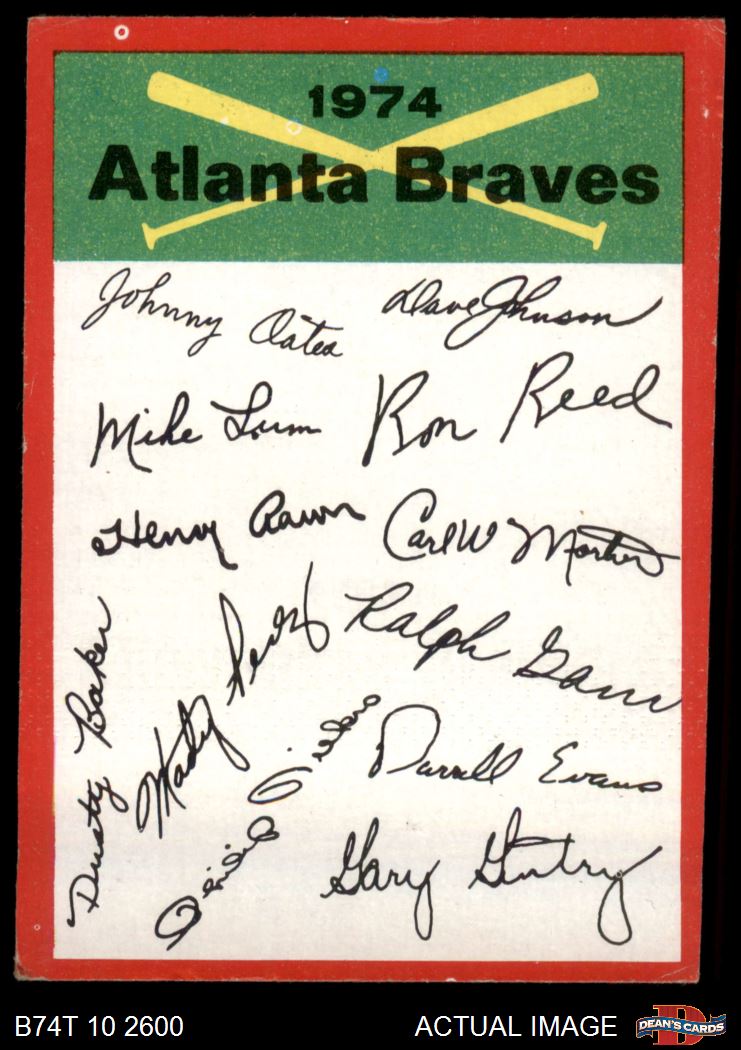 1974
Atlanta Braves
Johnny Oates
Dave Johnson
Mike Lum
Ron Reed
Henry Aaron
Carl W Morton
Ralph Garr
Dusty Baker
Marty Perez
Darrell Evans
Gary Gentry
B74T 10 2600
ACTUAL IMAGE
DEAN'S CARDS